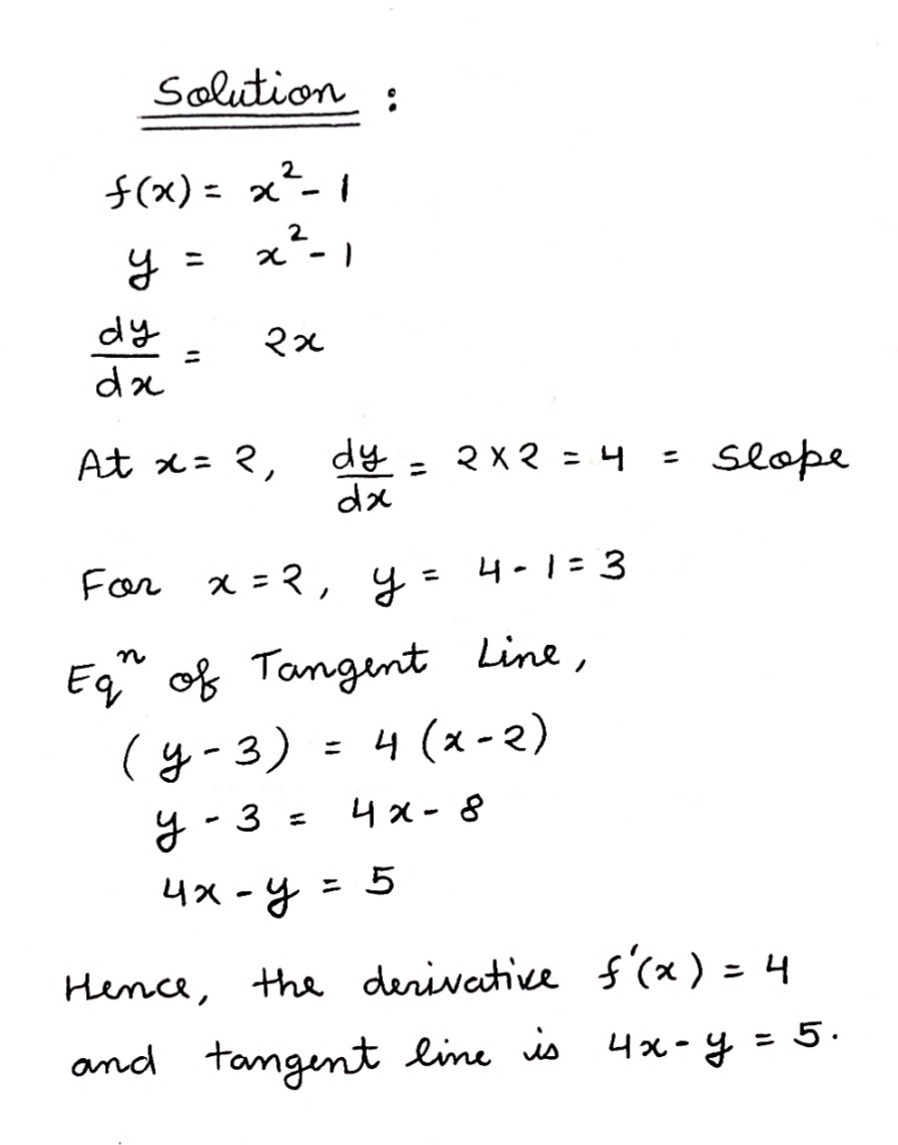 Solution :
f(x) = x² - 1
y = x² - 1
dy/dx = 2x
At x = 2, dy/dx = 2 × 2 = 4 = Slope
For x = 2, y = 4 - 1 = 3
Eqⁿ of Tangent Line,
(y - 3) = 4 (x - 2)
y - 3 = 4x - 8
4x - y = 5
Hence, the derivative f'(x) = 4
and tangent line is 4x - y = 5.